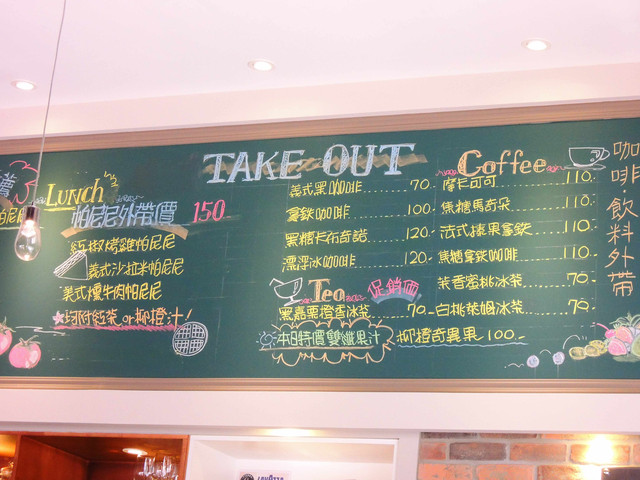 TAKE OUT
LUNCH
帕尼尼外帶價 150
紅椒烤雞帕尼尼
義式沙拉米帕尼尼
美式燻牛肉帕尼尼
均附紅茶 or 柳橙汁!
義式黑咖啡 70
拿鐵咖啡 100
黑糖卡布奇諾 120
漂浮冰咖啡 120
Coffee
摩卡可可 110
焦糖瑪奇朵 110
法式榛果拿鐵 110
焦糖拿鐵咖啡 110
Tea 促銷價
黑嘉栗橙香冰茶 70
茉香蜜桃冰茶 70
白桃萊姆冰茶 70
本日特價雙纖果汁
柳橙奇異果 100
咖啡·飲料外帶
LAVAZZA